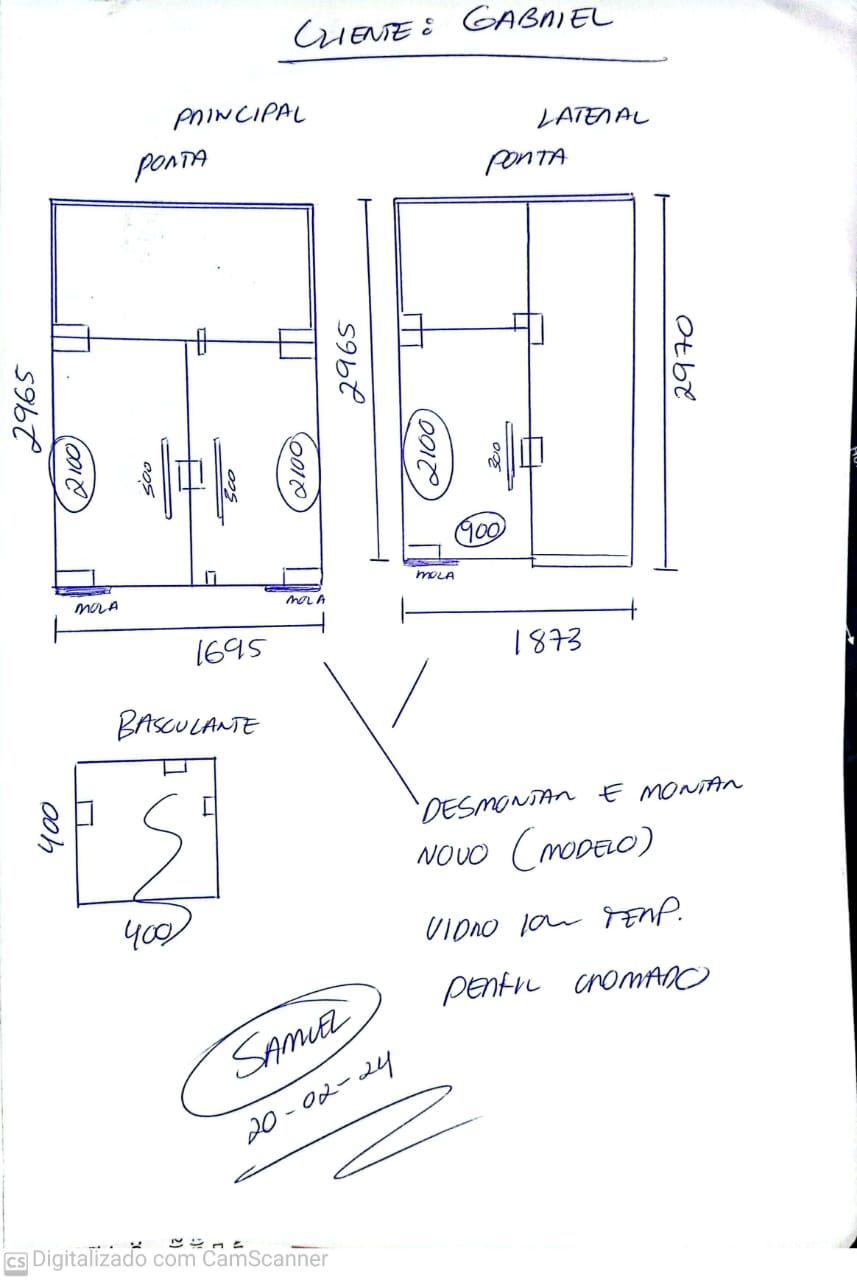 CLIENTE: GABRIEL
PRINCIPAL
PORTA
LATERAL
PORTA
2965
2100
500
500
2100
MOLA
MOLA
1695
2965
2100
300
900
MOLA
2970
1873
BASCULANTE
400
400
DESMONTAR E MONTAR
NOVO (MODELO)
VIDRO 10m TEMP.
PERFIL CROMADO
SAMUEL
20-02-24
CS Digitalizado com CamScanner